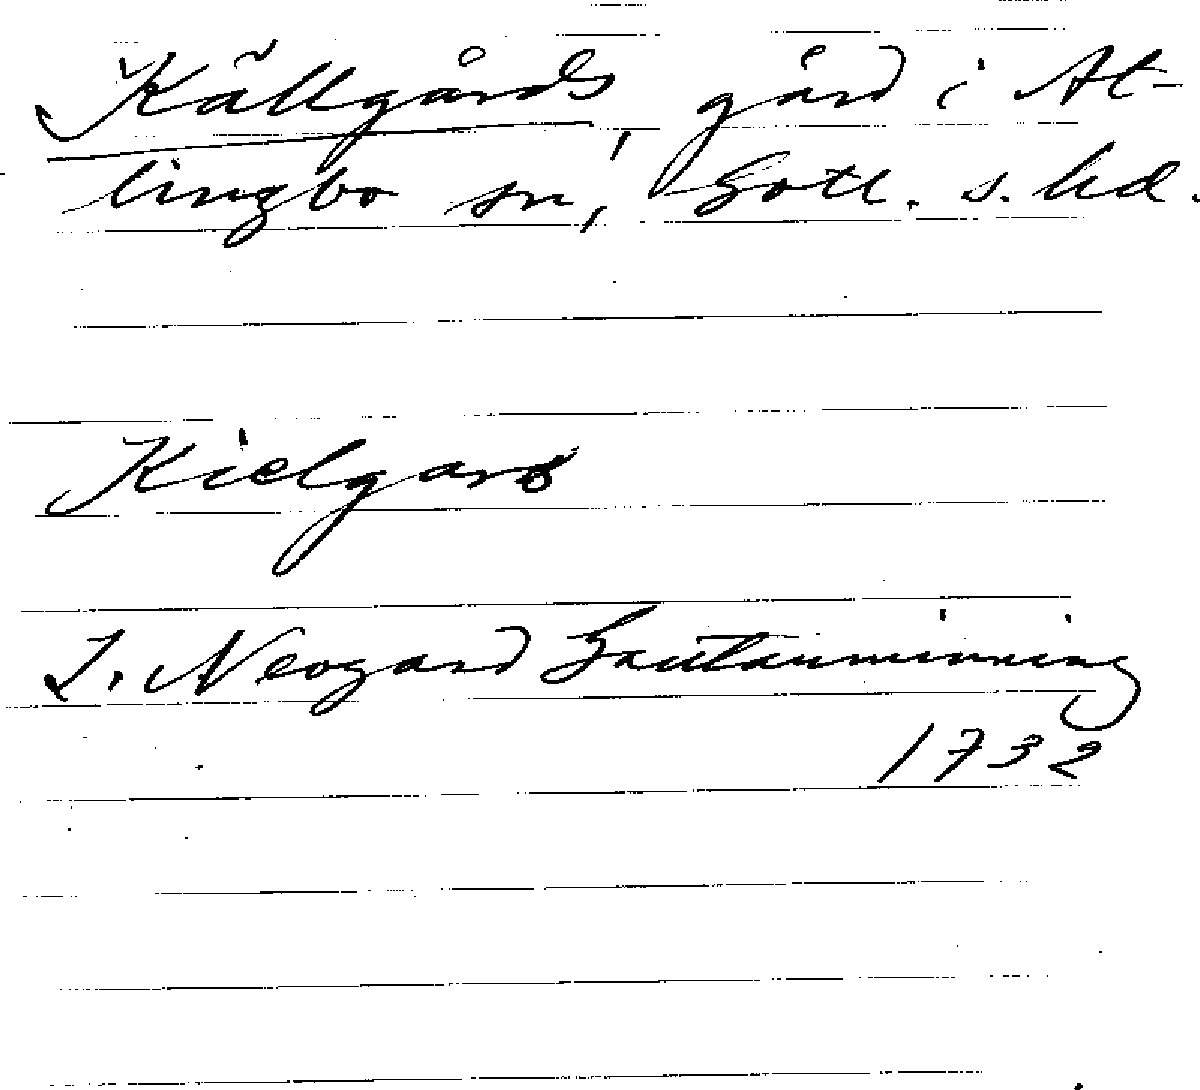 Källgårds, gård i At-
lingbo sn, Gotl. s. hd.
Kielgard
J. Neogard Gautauminning
1732